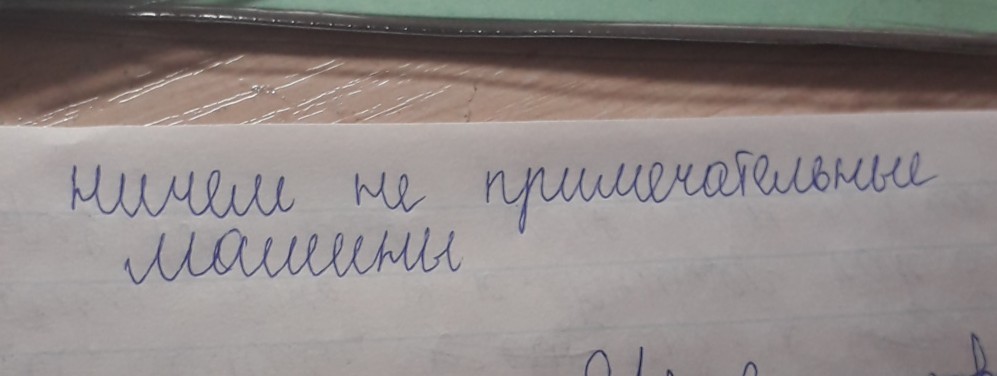 ничем не примечательные
машины